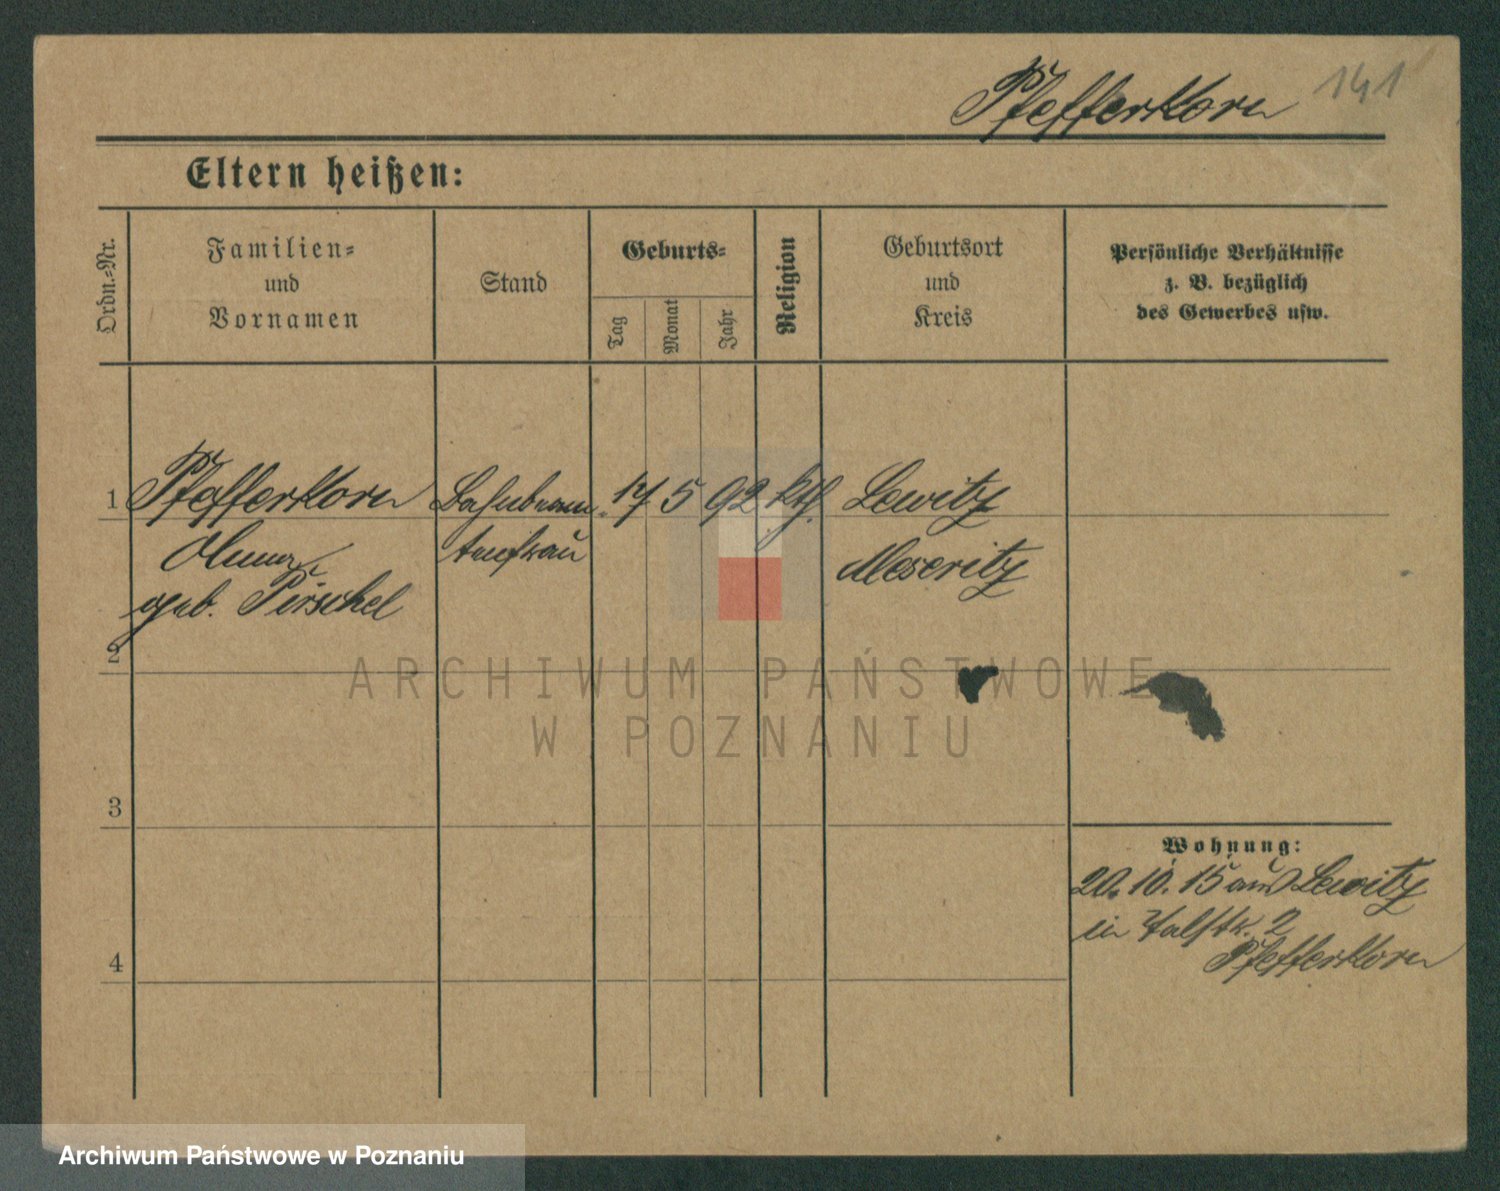 141
Pfefferkorn
Eltern heißen:
Ordn.-Nr.
Familien-
und
Vornamen
Stand
Geburts-
Tag
Monat
Jahr
Religion
Geburtsort
und
Kreis
Persönliche Verhältnisse
z. B. bezüglich
des Gewerbes usw.
1
Pfefferkorn
geb. Pirschel
Bahnbeam-
tenfrau
17 5 92 kth.
Lewitz
Meseritz
2
3
4
Wohnung:
20. 10. 15 aus Lewitz
in 2
Pfefferkorn
ARCHIWUM PAŃSTWOWE
W POZNANIU
Archiwum Państwowe w Poznaniu